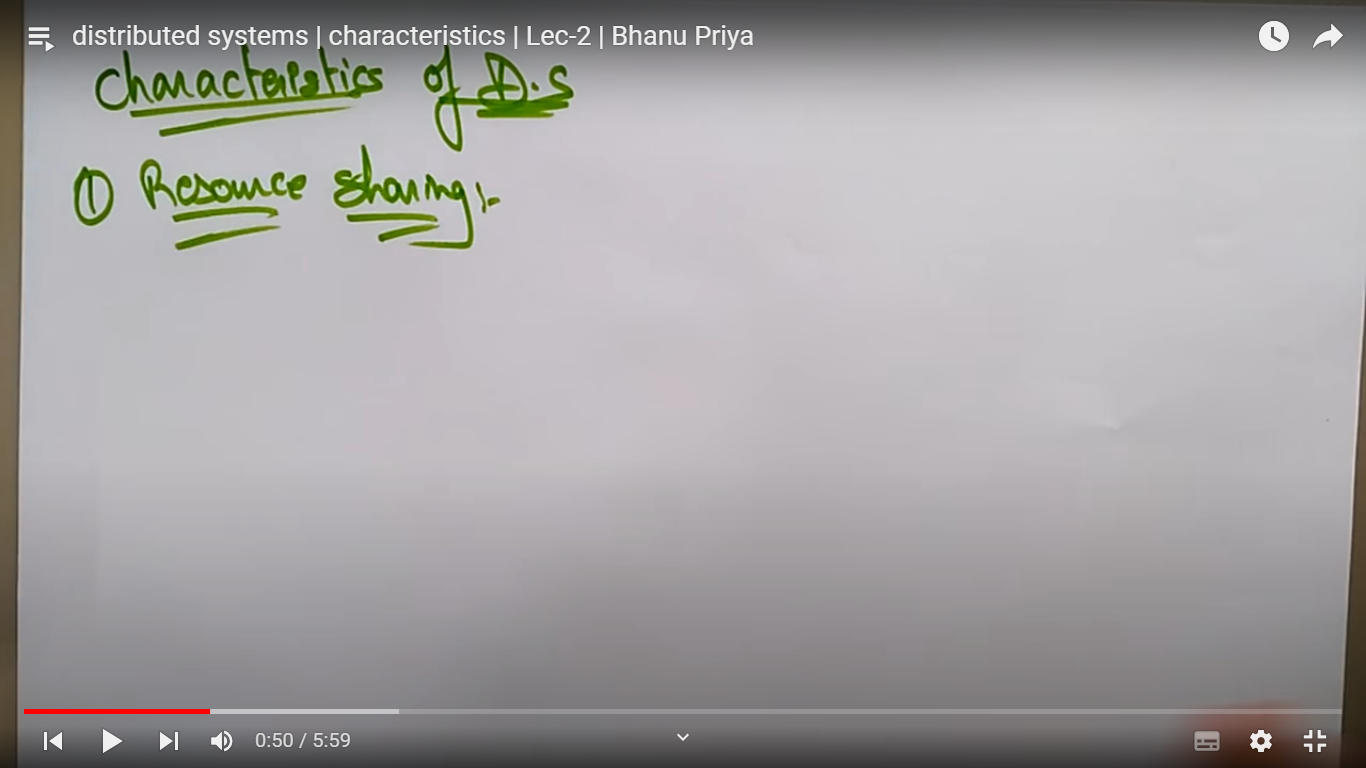 distributed systems | characteristics | Lec-2 | Bhanu Priya
Characteristics of D.S
① Resource sharing:-
0:50 / 5:59